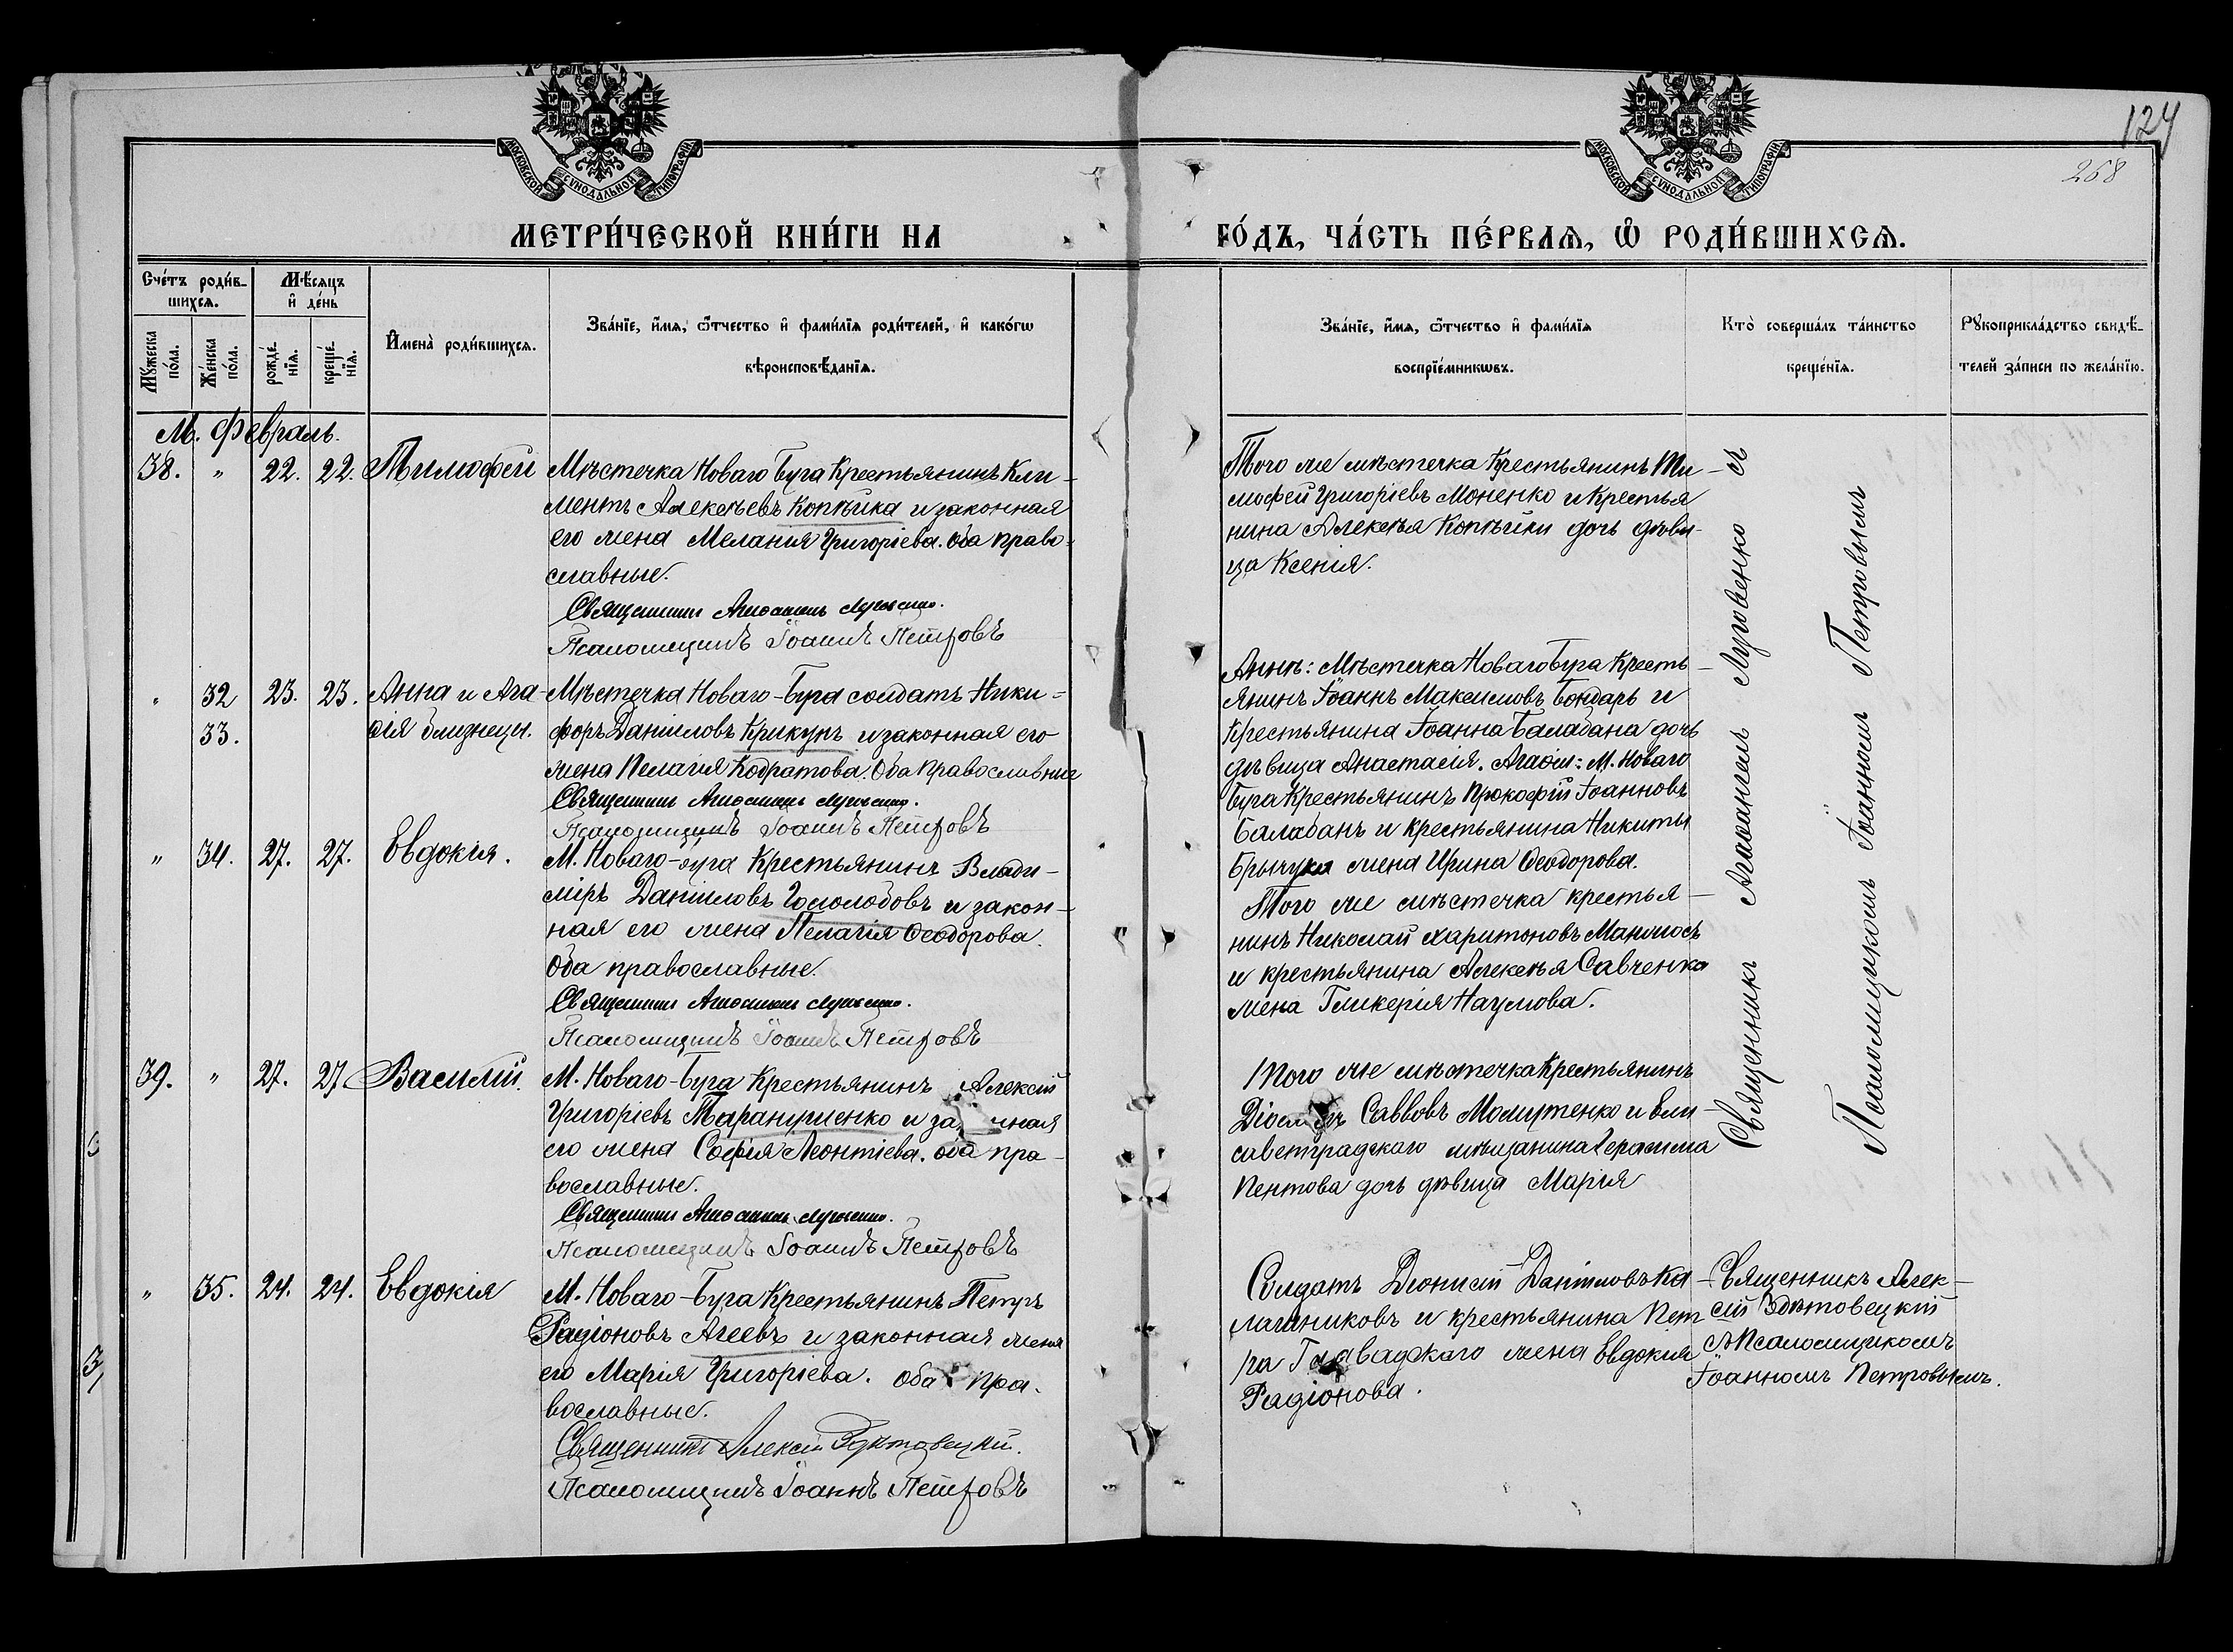 МОСКОВСКОЙ СУНОДАЛЬНОЙ ТИПОГРАФІИ
МОСКОВСКОЙ СУНОДАЛЬНОЙ ТИПОГРАФІИ
124
268
МЕТРИ́ЧЕСКОЙ КНИ́ГИ НА
ГО́ДЪ, ЧА́СТЬ ПЕ́РВАѦ, Ѿ РОДИ́ВШИХСѦ.
Сче́тъ роди́в-
шихсѧ.
Мѣсѧцъ
и҆ де́нь
Мꙋ́жеска
по́ла.
Же́нска
по́ла.
рожде́-
нїѧ.
креще́-
нїѧ.
И҆мена̀ роди́вшихсѧ.
Зва́нїе, и҆́мѧ, ѻ҆́тчество и҆ фами́лїѧ роди́телей, и҆ како́гѡ
вѣроисповѣ́данїѧ.
Зва́нїе, и҆́мѧ, ѻ҆́тчество и҆ фами́лїѧ
воспрїе́мникѡвъ.
Кто̀ соверша́лъ та́инство
креще́нїѧ.
Рꙋкоприкла́дство свидѣ́-
телей за́писи по жела́нїю.
М. Февраль.
38. " 22. 22. Тимофей
Мѣстечка Новаго Буга Крестьянинъ Кли-
ментъ Алексѣевъ Копѣйка и законная
его жена Меланія Григоріева. Оба право-
славные.
Священникъ Агаѳангелъ Луговенко.
Псаломщикъ Іоаннъ Петровъ
Того же мѣстечка Крестьянинъ Ти-
мофей Григоріевъ Моненко и Крестья
нина Алексѣя Копѣйки дочь дѣви-
ца Ксенія.
" 32 23. 23. Анна и Ага-
33. ѳія близнецы.
Мѣстечка Новаго-Буга солдатъ Ники-
форъ Даніиловъ Крикунъ и законная его
жена Пелагія Кодратова. Оба Православные
Священникъ Агаѳангелъ Луговенко.
Псаломщикъ Іоаннъ Петровъ
Аннѣ: Мѣстечка Новаго Буга Кресть-
янинъ Іоаннъ Максимовъ Бондарь и
Крестьянина Іоанна Балабана дочь
дѣвица Анастасія. Агаѳіи: М. Новаго
Буга Крестьянинъ Прокофій Іоанновъ
Балабанъ и крестьянина Никиты
жена Ирина Ѳеодорова.
" 34. 27. 27. Евдокія.
М. Новаго-буга Крестьянинъ Влади-
міръ Даніиловъ Гололобовъ и закон-
ная его жена Пелагія Ѳеодорова.
Оба православные.
Священникъ Агаѳангелъ Луговенко.
Псаломщикъ Іоаннъ Петровъ
Того же мѣстечка крестья-
нинъ Николай Харитоновъ
и крестьянина Алексѣя Савченко
жена Гликерія Наумова.
39. " 27. 27 Василій.
М. Новаго-Буга Крестьянинъ Алексій
Григоріевъ Таранушенко и за ная
его жена Софія Леонтіева. оба пра-
вославные.
Священникъ Агаѳангелъ Луговенко.
Псаломщикъ Іоаннъ Петровъ
Того же мѣстечка Крестьянинъ
Саввовъ и Ели-
саветградского мѣщанина Герасима
Пентова дочь дѣвица Марія
Священникъ Агаѳангелъ Луговенко съ
Псаломщикомъ Іоанномъ Петровымъ
" 35. 24. 24. Евдокія
М. Новаго-Буга Крестьянинъ Петръ
Радіоновъ Агеевъ и законная жена
его Марія Григоріева. оба пра-
вославные.
Священникъ Алексій
Псаломщикъ Іоаннъ Петровъ
Солдатъ Діонисій Даніиловъ Ка-
лашниковъ и крестьянина Пет
ра жена Евдокия
Радіонова.
Священникъ Алек-
сій
съ Псаломщикомъ
Іоанномъ Петровымъ.